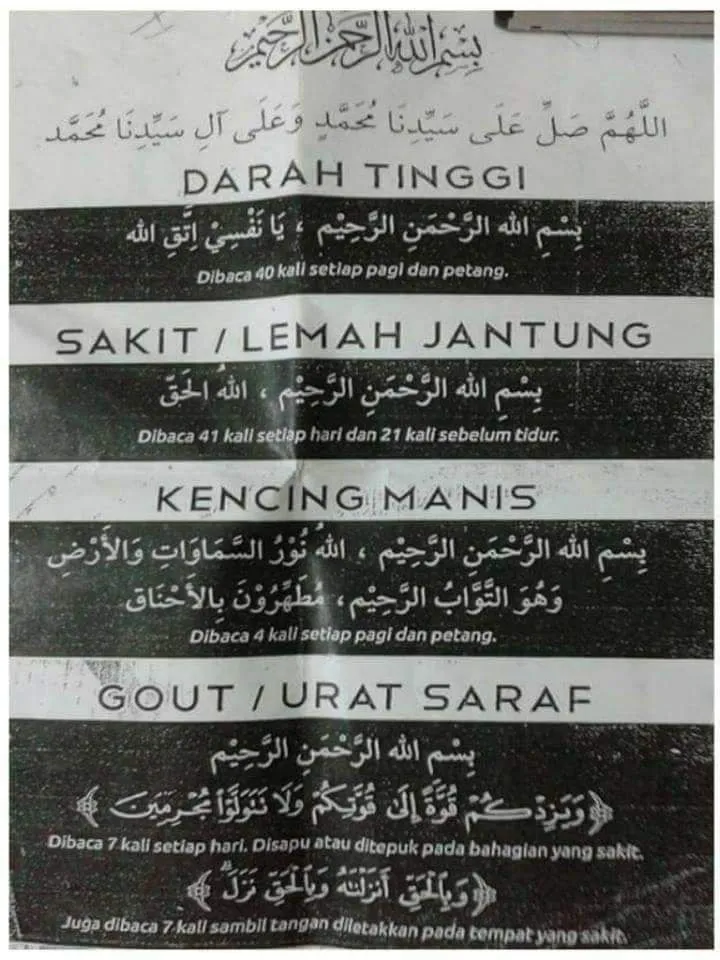 بِسْمِ اللهِ الرَّحْمٰنِ الرَّحِيْمِ
اللَّهُمَّ صَلِّ عَلَى سَيِّدِنَا مُحَمَّدٍ وَعَلَى آلِ سَيِّدِنَا مُحَمَّد
DARAH TINGGI
بِسْمِ الله الرَّحْمَنِ الرَّحِيْمِ ، يَا نَفْسِيْ اِتَّقِ الله
Dibaca 40 kali setiap pagi dan petang.
SAKIT / LEMAH JANTUNG
بِسْمِ الله الرَّحْمَنِ الرَّحِيْمِ ، اللهُ الحَقّ
Dibaca 41 kali setiap hari dan 21 kali sebelum tidur.
KENCING MANIS
بِسْمِ الله الرَّحْمَنِ الرَّحِيْمِ ، اللهُ نُوْرُ السَّمَاوَاتِ وَالأَرْضِ
وَهُوَ التَّوَّابُ الرَّحِيْم، مُطَهِّرُوْنَ بِالأَحْنَاق
Dibaca 4 kali setiap pagi dan petang.
GOUT / URAT SARAF
بِسْمِ الله الرَّحْمَنِ الرَّحِيْمِ
﴿وَيَزِدْكُمْ قُوَّةً إِلَىٰ قُوَّتِكُمْ وَلَا تَتَوَلَّوْا۟ مُجْرِمِينَ﴾
Dibaca 7 kali setiap hari. Disapu atau ditepuk pada bahagian yang sakit.
﴿وَبِٱلْحَقِّ أَنزَلْنَٰهُ وَبِٱلْحَقِّ نَزَلَ ۗ﴾
Juga dibaca 7 kali sambil tangan diletakkan pada tempat yang sakit.